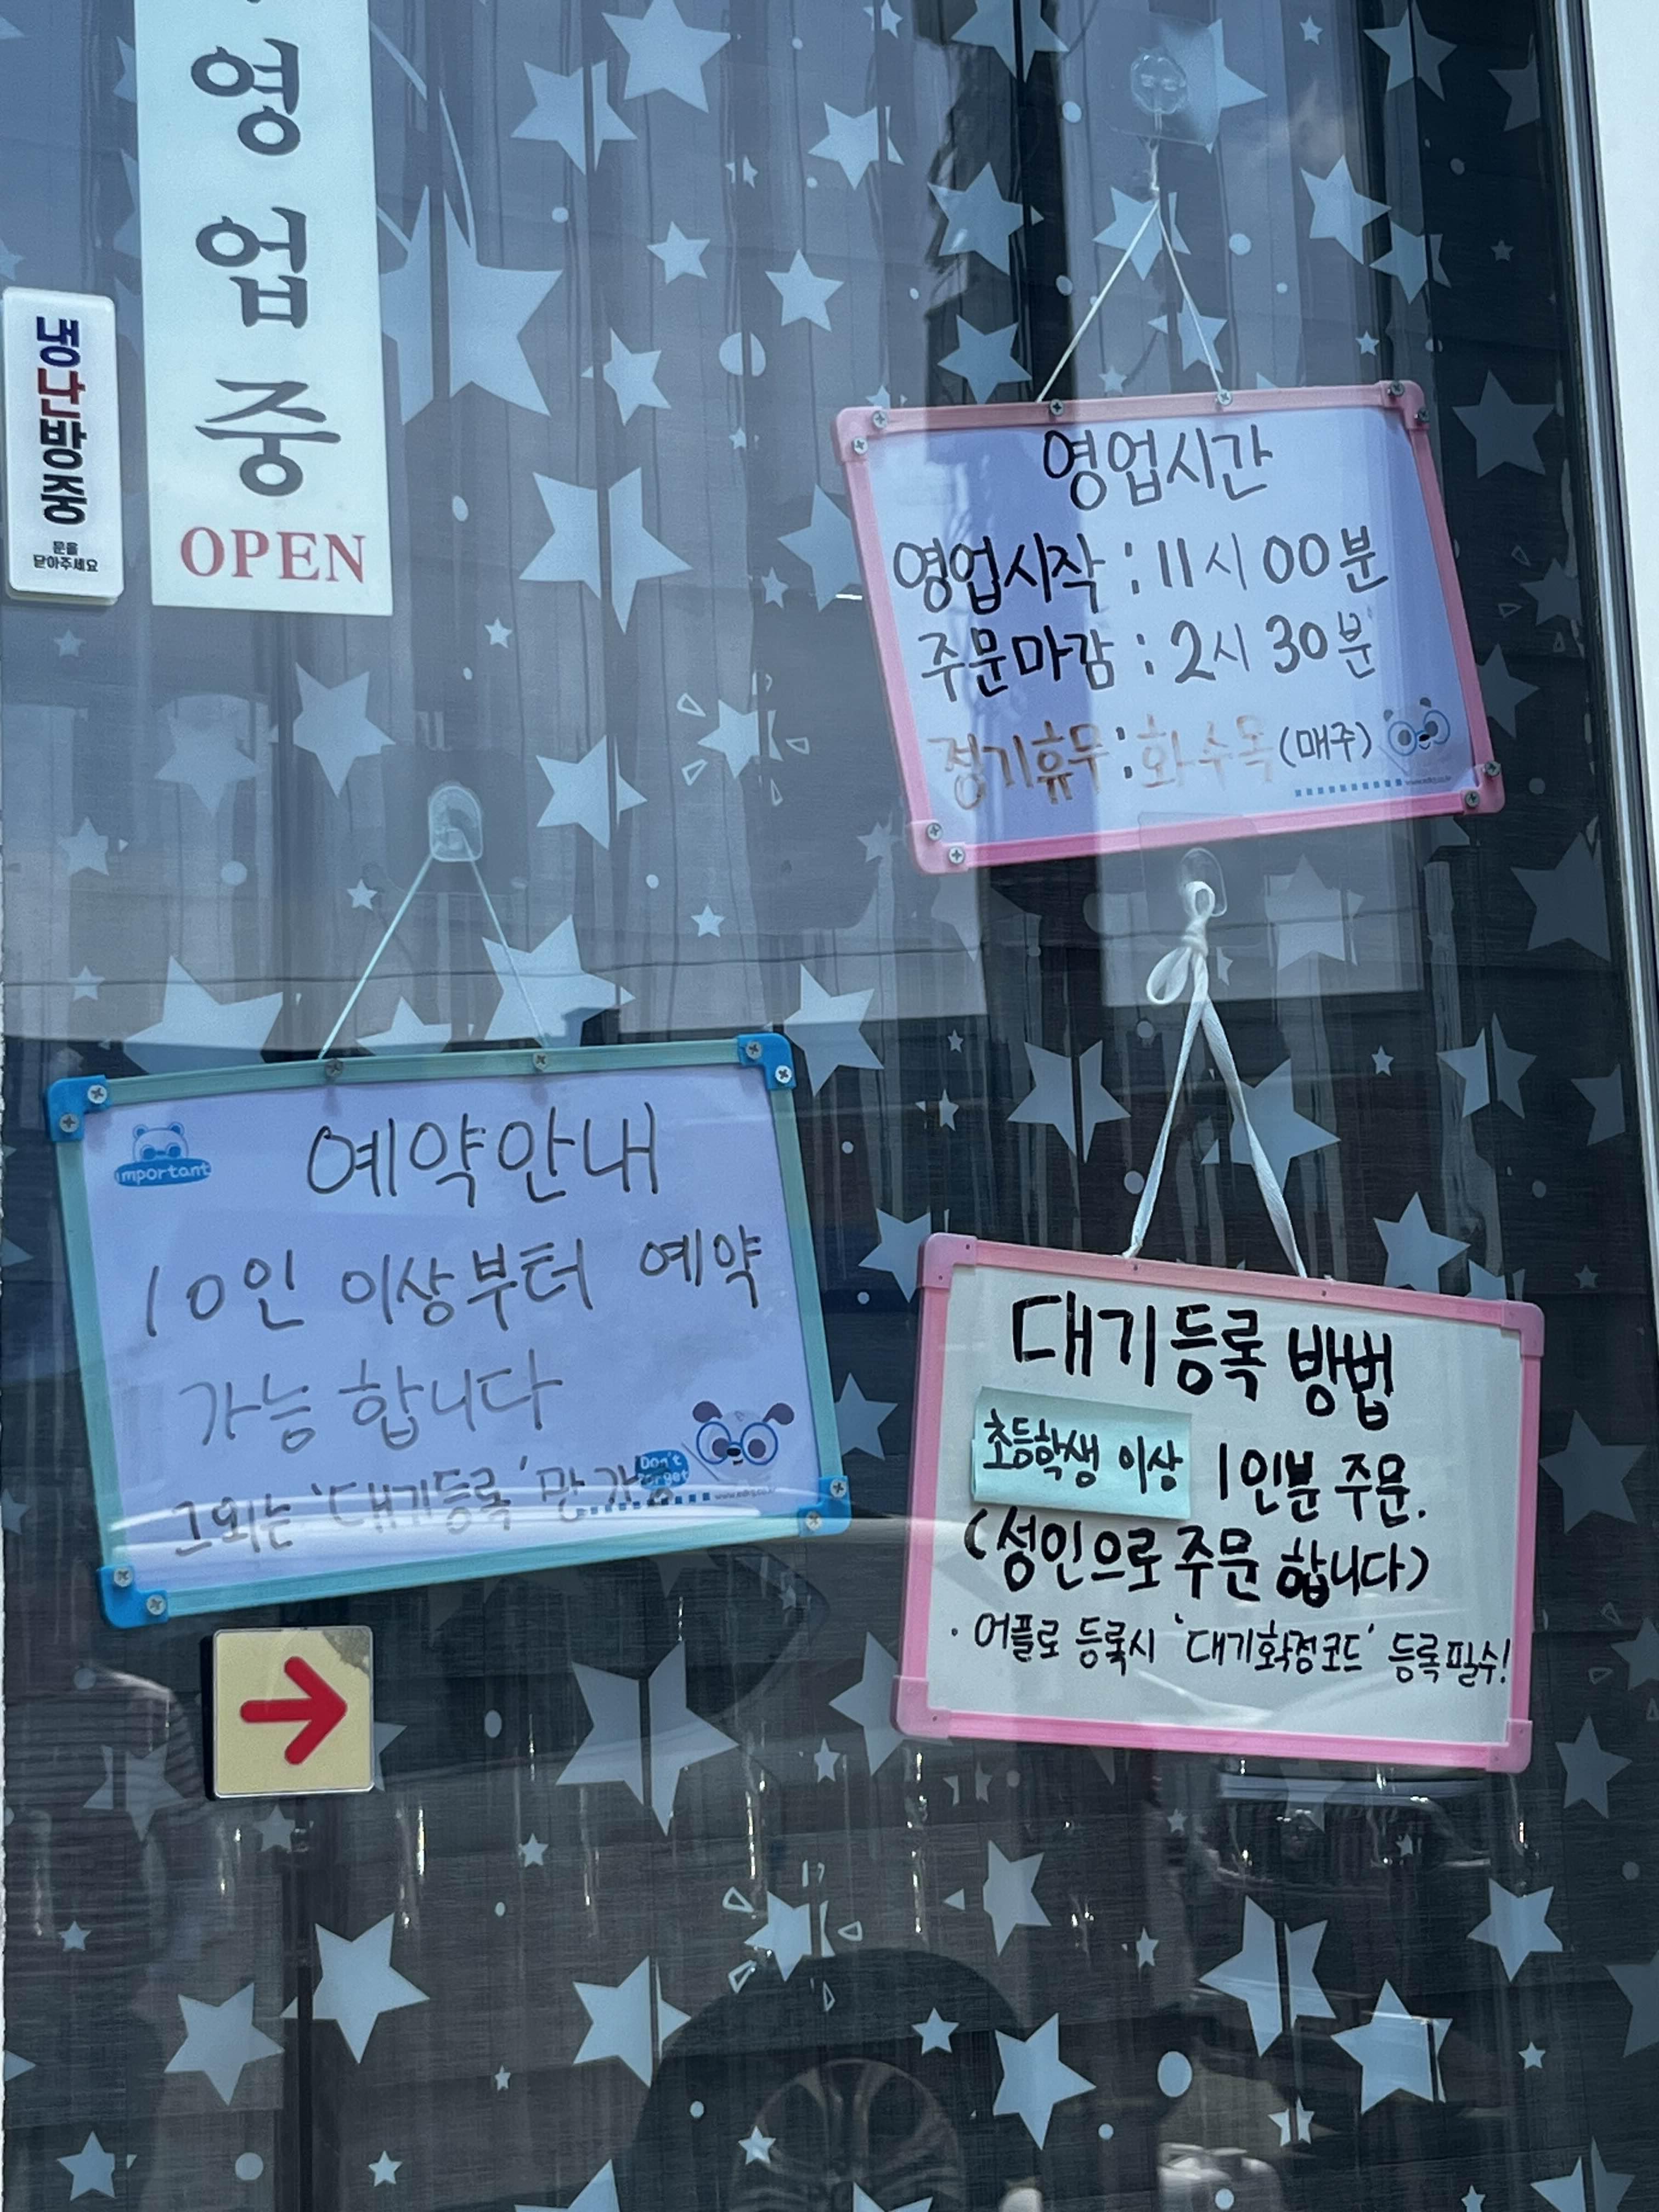 영
업
중
OPEN
냉난방중
문을
닫아주세요
영업시간
영업시작 : 11시 00분
주문마감 : 2시 30분
정기휴무 : 화수목 (매주)
www.edko.co.kr
important
예약안내
10인 이상부터 예약
가능 합니다
그외는 '대기등록' 만 가능
Don't
forget
대기등록 방법
초등학생 이상 1인분 주문.
(성인으로 주문 합니다)
· 어플로 등록시 '대기확정코드' 등록필수!